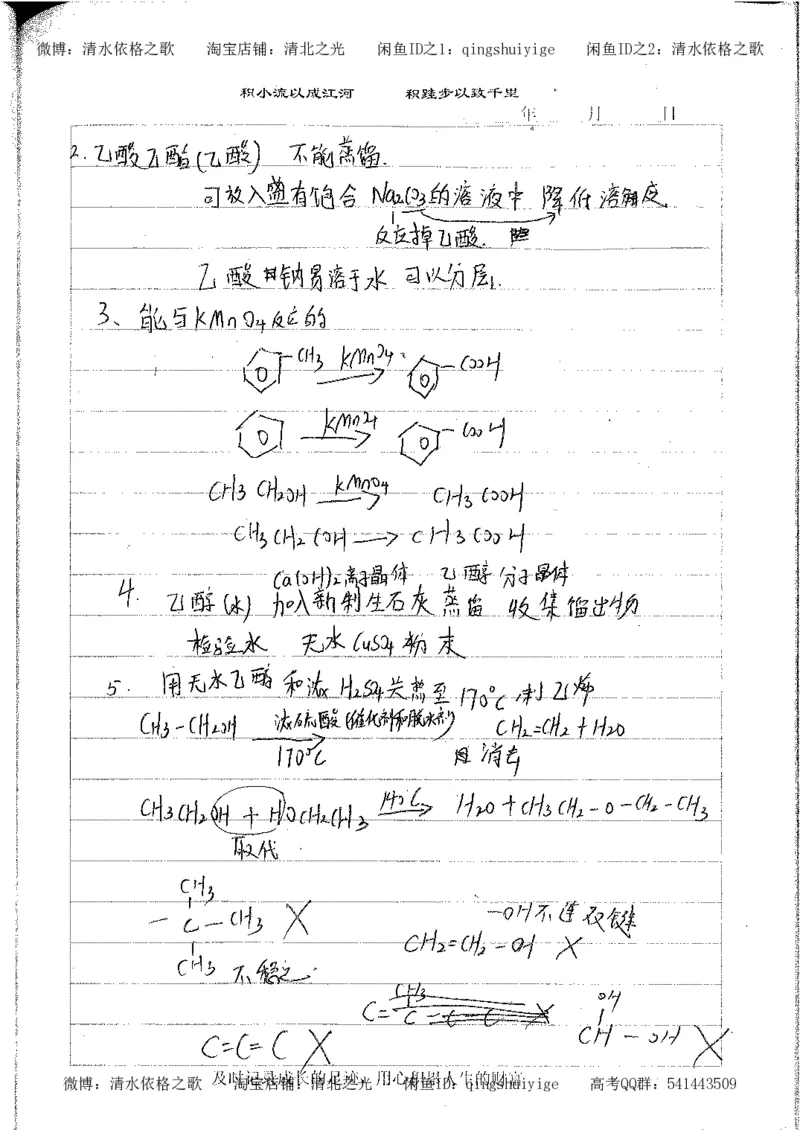 微博：清水依格之歌 淘宝店铺：清北之光 闲鱼ID之1：qingshuiyige 闲鱼ID之2：清水依格之歌
积小流以成江河 积跬步以致千里
年 月 日
2. 乙酸乙酯(乙酸) 不能蒸馏.
可放入盛有饱合 Na2CO3的溶液中 降低溶解度.
反应掉乙酸.
乙酸钠易溶于水 可以分层.
3、能与KMnO4反应的
CH3 KMnO4 COOH
KMnO4 COOH
CH3CH2OH KMnO4 CH3COOH
CH3CH2COH → CH3COOH
Ca(OH)2离子晶体 乙醇分子晶体
4. 乙醇(水) 加入新制生石灰 蒸馏 收集馏出物
检验水 无水CuSO4粉末
5. 用无水乙醇和浓H2SO4共热至170℃制乙烯
CH3-CH2OH 浓硫酸(催化剂和脱水剂) CH2=CH2+H2O
170℃ 消去
CH3CH2OH + HOCH2CH3 140℃ H2O+CH3CH2-O-CH2-CH3
取代
CH3
-C-CH3 X
CH3 不稳定.
-OH不连双键
CH2=CH2-OH X
CH3
OH
CH-OH X
C=C=C X
微博：清水依格之歌 淘宝店铺：清北之光 闲鱼ID：qingshuiyige 高考QQ群：541443509
及时记录成长的足迹，用心积累人生的财富